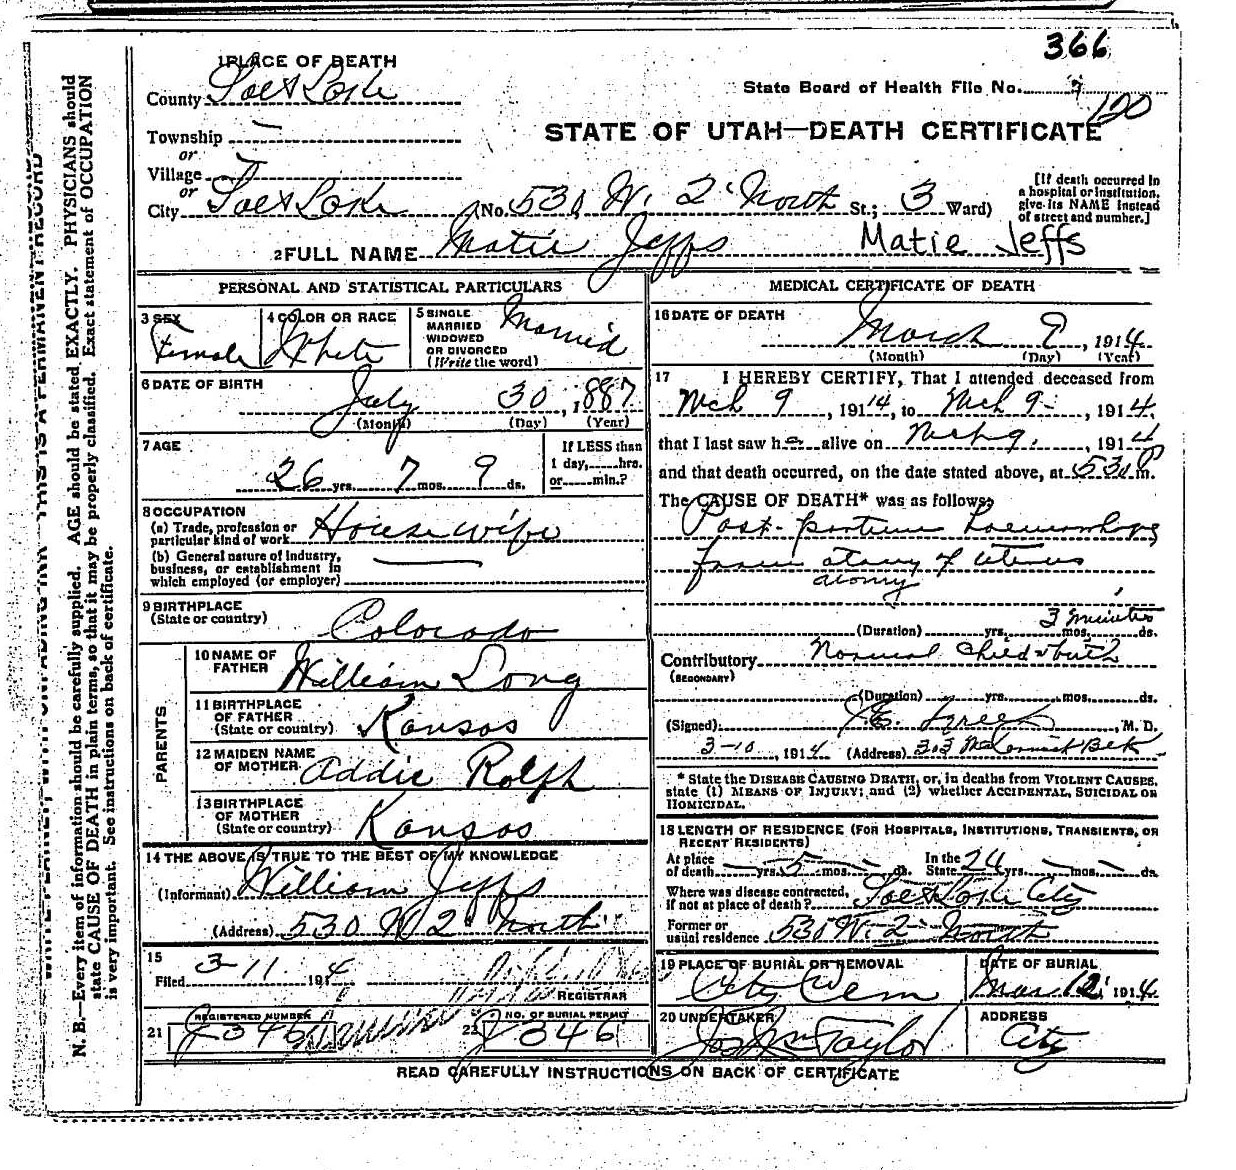 366
1 PLACE OF DEATH
State Board of Health File No. 7
120
County Salt Lake
STATE OF UTAH—DEATH CERTIFICATE
Township
or
Village
or
City Salt Lake (No. 530 W. 2 North St.; 3 Ward)
[If death occurred in a hospital or institution, give its NAME instead of street and number.]
2 FULL NAME Matie Jeffs Matie Jeffs
PERSONAL AND STATISTICAL PARTICULARS
3 SEX Female
4 COLOR OR RACE White
5 SINGLE MARRIED WIDOWED OR DIVORCED (Write the word) Married
6 DATE OF BIRTH
July 30, 1887
(Month) (Day) (Year)
7 AGE
26 yrs. 7 mos. 9 ds.
If LESS than
1 day,......hrs.
or......min.?
8 OCCUPATION
(a) Trade, profession or
particular kind of work House wife
(b) General nature of Industry,
business, or establishment in
which employed (or employer)
9 BIRTHPLACE
(State or country) Colorado
PARENTS
10 NAME OF
FATHER William Long
11 BIRTHPLACE
OF FATHER
(State or country) Kansas
12 MAIDEN NAME
OF MOTHER Addie Rolph
13 BIRTHPLACE
OF MOTHER
(State or country) Kansas
14 THE ABOVE IS TRUE TO THE BEST OF MY KNOWLEDGE
(Informant) William Jeffs
(Address) 530 W 2 North
15
Filed 3-11 1914
REGISTRAR
REGISTERED NUMBER
21 J 346
NO. OF BURIAL PERMIT
22 J 346
MEDICAL CERTIFICATE OF DEATH
16 DATE OF DEATH
March 9, 1914
(Month) (Day) (Year)
17 I HEREBY CERTIFY, That I attended deceased from
Mch 9, 1914, to Mch 9-, 1914,
that I last saw her alive on Mch 9, 1914
and that death occurred, on the date stated above, at 530 P m.
The CAUSE OF DEATH* was as follows:
Post-partum haemorrhage
from atony of uterus
atony
3 minutes
(Duration) yrs. mos. ds.
Contributory Normal Child birth
(SECONDARY)
(Duration) yrs. mos. ds.
(Signed) , M. D.
3-10, 1914 (Address) 303 McCornick Blk
* State the DISEASE CAUSING DEATH, or, in deaths from VIOLENT CAUSES,
state (1) MEANS OF INJURY; and (2) whether ACCIDENTAL, SUICIDAL OR
HOMICIDAL.
18 LENGTH OF RESIDENCE (FOR HOSPITALS, INSTITUTIONS, TRANSIENTS, OR
RECENT RESIDENTS)
At place of death — yrs. 5 mos. — ds. In the State 24 yrs. — mos. — ds.
Where was disease contracted,
if not at place of death? Salt Lake City
Former or
usual residence 530 W. 2 North
19 PLACE OF BURIAL OR REMOVAL
City Cem
DATE OF BURIAL
Mar 12 1914
20 UNDERTAKER
Jos Wm Taylor
ADDRESS
City
READ CAREFULLY INSTRUCTIONS ON BACK OF CERTIFICATE
WRITE PLAINLY, WITH UNFADING INK—THIS IS A PERMANENT RECORD
N. B.—Every item of information should be carefully supplied. AGE should be stated EXACTLY. PHYSICIANS should
state CAUSE OF DEATH in plain terms, so that it may be properly classified. Exact statement of OCCUPATION
is very important. See instructions on back of certificate.